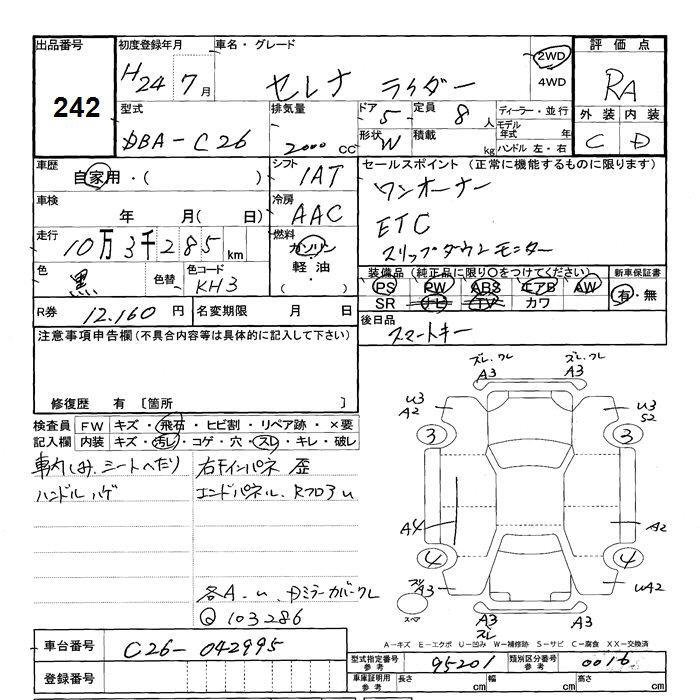 出品番号 初度登録年月 車名・グレード 評価点
242
H24 7月 セレナ ライダー 2WD 4WD RA
型式 排気量 ドア 5 定員 8人 ディーラー・並行 外装 内装
DBA-C26 2000 cc 形状 W 積載 kg モデル年式 年 ハンドル 左・右 C D
車歴 シフト セールスポイント (正常に機能するものに限ります)
自家用・( ) 1AT ワンオーナー
車検 冷房
年 月( 日) AAC ETC
走行 燃料
10万3千285km ガソリン スリップダウンモニター
色 黒 色替 色コード KH3 ・軽油・ ( ) 装備品 (純正品に限り○をつけてください) 新車保証書
PS PW ABS エアB AW 有・無
SR ナビ TV カワ
R券 12.160円 名変期限 月 日 後日品
スマートキー
注意事項申告欄(不具合内容等は具体的に記入して下さい)
修復歴 有 〔箇所 〕
検査員 FW キズ・飛石・ヒビ割・リペア跡・×要
記入欄 内装 キズ・汚レ・コゲ・穴・スレ・キレ・破レ
車内しみ、シートへたり
ハンドルハゲ
エンドパネル、Rフロアu
Q 103286
ズレ、ワレ A3 ズレ、ワレ A3
U3 A2 U3 S2
3 3
A4 A2
4 4
A3 UA2
スペア
A3 スレ A3
A-キズ E-エクボ U-凹み W-補修跡 S-サビ C-腐食 XX-交換済
車台番号 C26-042995
型式指定番号 参考 95201 類別区分番号 参考 0016
登録番号 車庫証明用 参考 長さ cm 幅 cm 高さ cm